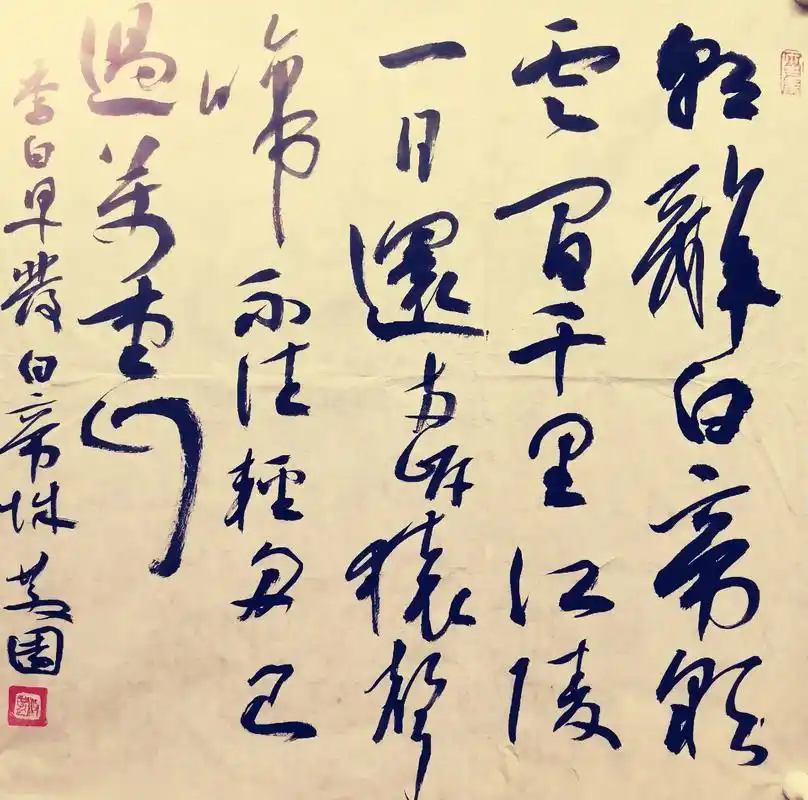 朝辭白帝彩
雲間千里江陵
一日還兩岸猿聲
啼不住輕舟已
過萬重山
李白早發白帝城